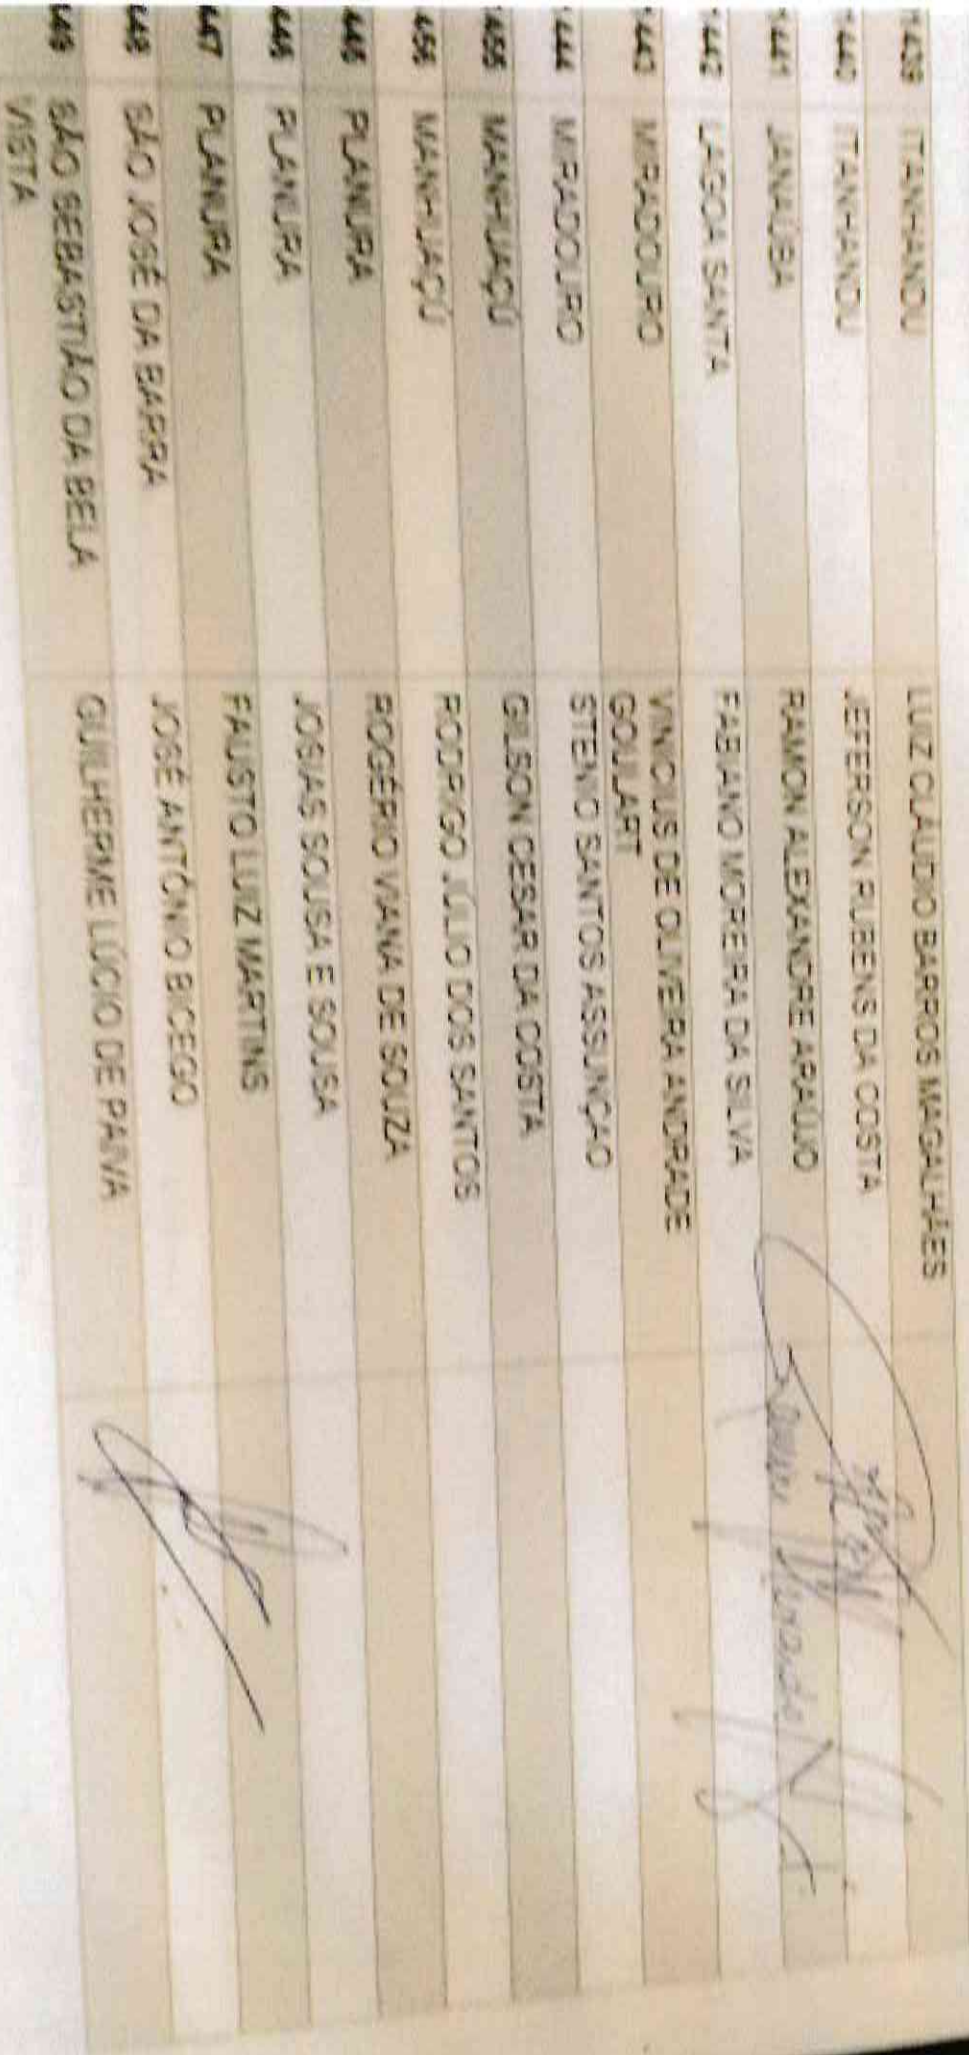 1439 ITANHANDU LUIZ CLÁUDIO BARROS MAGALHÃES
1440 ITANHANDU JEFERSON RUBENS DA COSTA
1441 JANAÚBA RAMON ALEXANDRE ARAÚJO
1442 LAGOA SANTA FABIANO MOREIRA DA SILVA
1443 MIRADOURO VINICIUS DE OLIVEIRA ANDRADE
GOULART
1444 MIRADOURO STENIO SANTOS ASSUNÇÃO
MANHUAÇÚ GILSON CESAR DA COSTA
MANHUAÇÚ RODRIGO JÚLIO DOS SANTOS
PLANURA ROGÉRIO VIANA DE SOUZA
PLANURA JOSIAS SOUSA E SOUSA
447 PLANURA FAUSTO LUIZ MARTINS
SÃO JOSÉ DA BARRA JOSÉ ANTÔNIO BICEGO
SÃO SEBASTIÃO DA BELA GUILHERME LÚCIO DE PAIVA
VISTA